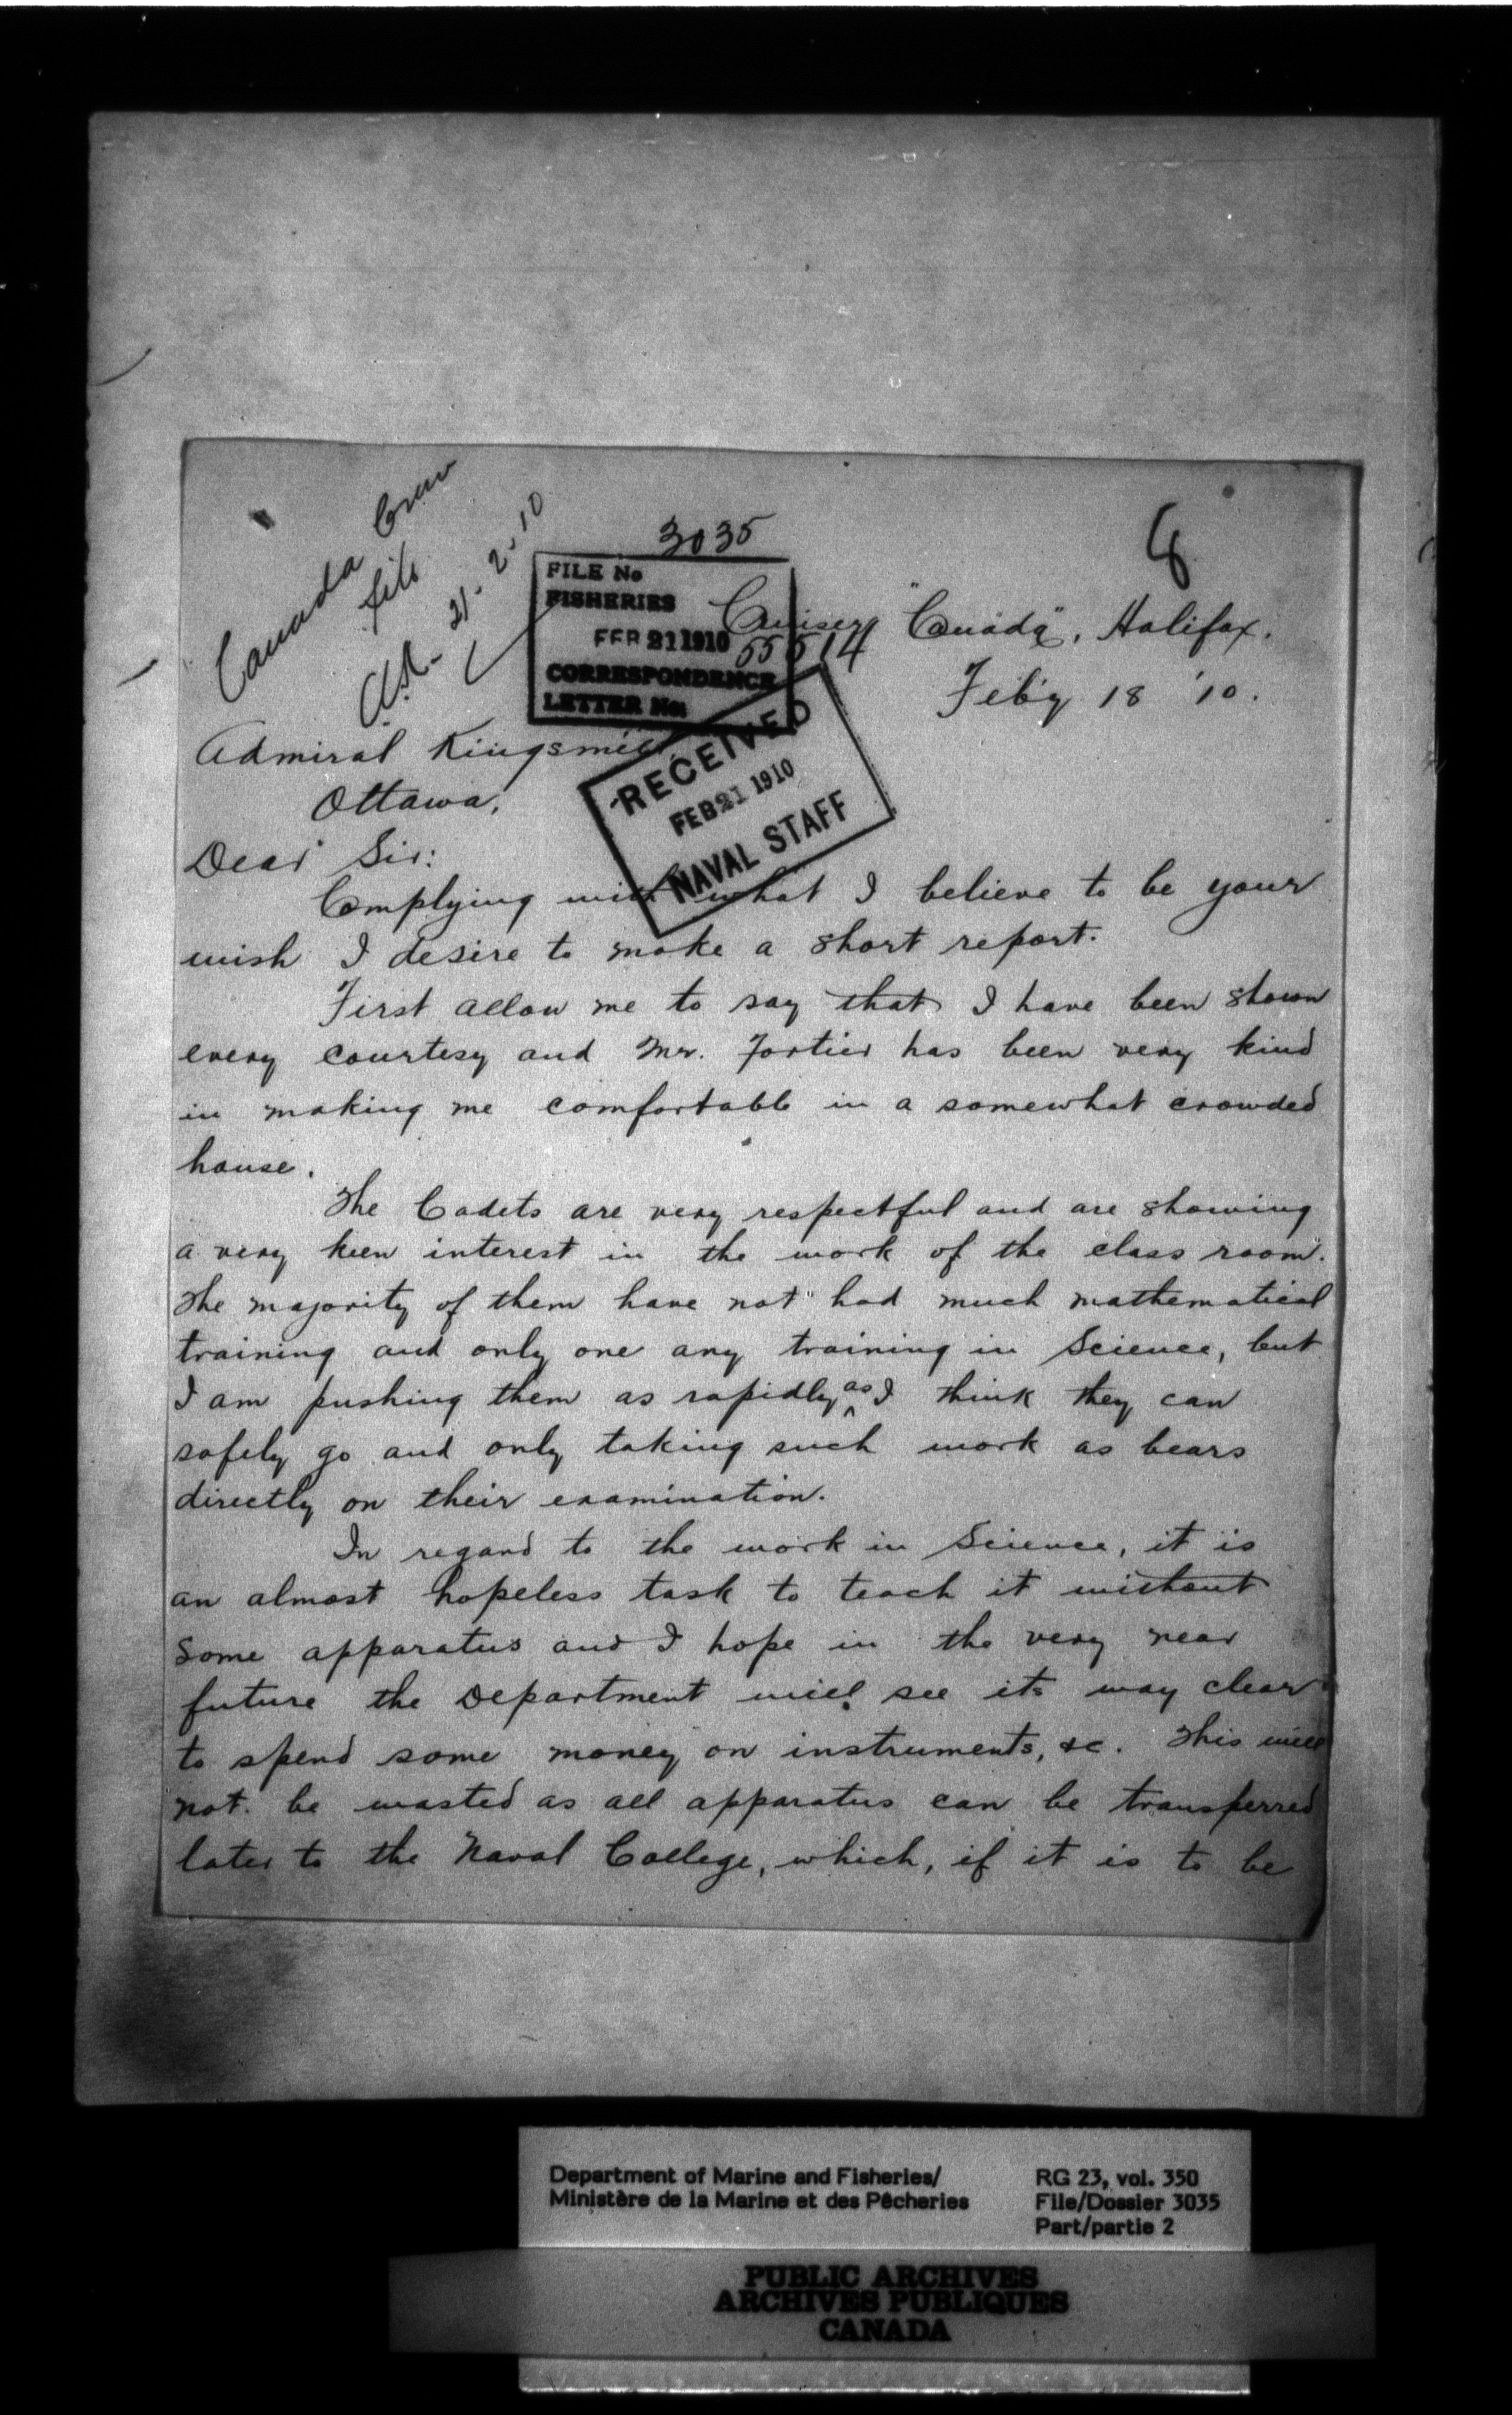 Canada Crew
file
21-2-10
3035
8
FILE No
FISHERIES
FEB 21 1910
55514
CORRESPONDENCE
LETTER No.
Cruiser "Canada", Halifax.
Feb'y 18 '10.
RECEIVED
FEB 21 1910
NAVAL STAFF
Admiral Kingsmill,
Ottawa,
Dear Sir:
Complying with what I believe to be your
wish I desire to make a short report.
First allow me to say that I have been shown
every courtesy and Mr. Fortier has been very kind
in making me comfortable in a somewhat crowded
house.
The Cadets are very respectful and are showing
a very keen interest in the work of the class room.
The majority of them have not had much mathematical
training and only one any training in Science, but
I am pushing them as rapidly as I think they can
safely go and only taking such work as bears
directly on their examination.
In regard to the work in Science, it is
an almost hopeless task to teach it without
some apparatus and I hope in the very near
future the Department will see its way clear
to spend some money on instruments, &c. This will
not be wasted as all apparatus can be transferred
later to the Naval College, which, if it is to be
Department of Marine and Fisheries/
Ministère de la Marine et des Pêcheries
RG 23, vol. 350
File/Dossier 3035
Part/partie 2
PUBLIC ARCHIVES
ARCHIVES PUBLIQUES
CANADA